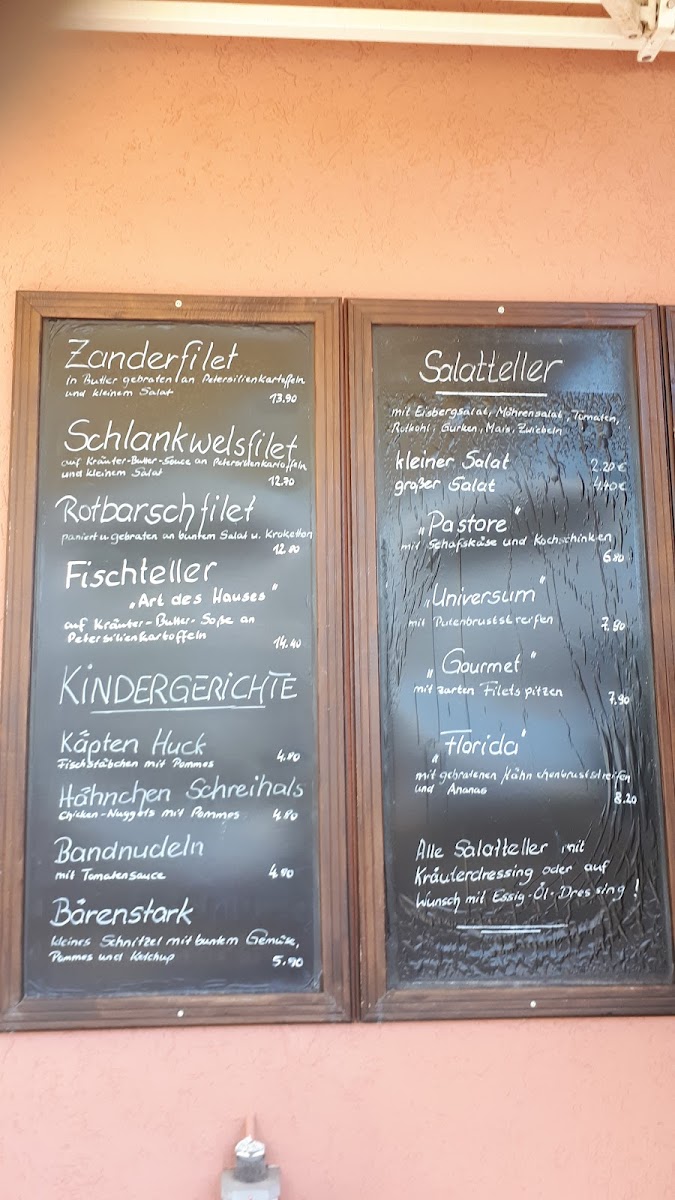 Zanderfilet
in Butter gebraten an Petersilienkartoffeln
und kleinem Salat
13.90
Schlankwelsfilet
auf Kräuter-Butter-Sauce an Petersilienkartoffeln
und kleinem Salat
12.70
Rotbarschfilet
paniert u. gebraten an buntem Salat u. Kroketten
12.80
Fischteller
„Art des Hauses"
auf Kräuter-Butter-Soße an
Petersilienkartoffeln
14.40
KINDERGERICHTE
Käpten Huck
Fischstäbchen mit Pommes
4.80
Hähnchen Schreihals
Chicken-Nuggets mit Pommes
4.80
Bandnudeln
mit Tomatensauce
4.80
Bärenstark
kleines Schnitzel mit buntem Gemüse,
Pommes und Ketchup
5.90
Salatteller
mit Eisbergsalat, Möhrensalat, Tomaten,
Rotkohl, Gurken, Mais, Zwiebeln
kleiner Salat 2.20 €
großer Salat 4.40 €
„Pastore"
mit Schafskäse und Kochschinken
6.80
„Universum"
mit Putenbruststreifen 7.90
„Gourmet"
mit zarten Filetspitzen
7.90
„Florida"
mit gebratenen Hähnchenbruststreifen
und Ananas
8.20
Alle Salatteller mit
Kräuterdressing oder auf
Wunsch mit Essig-Öl-Dressing!